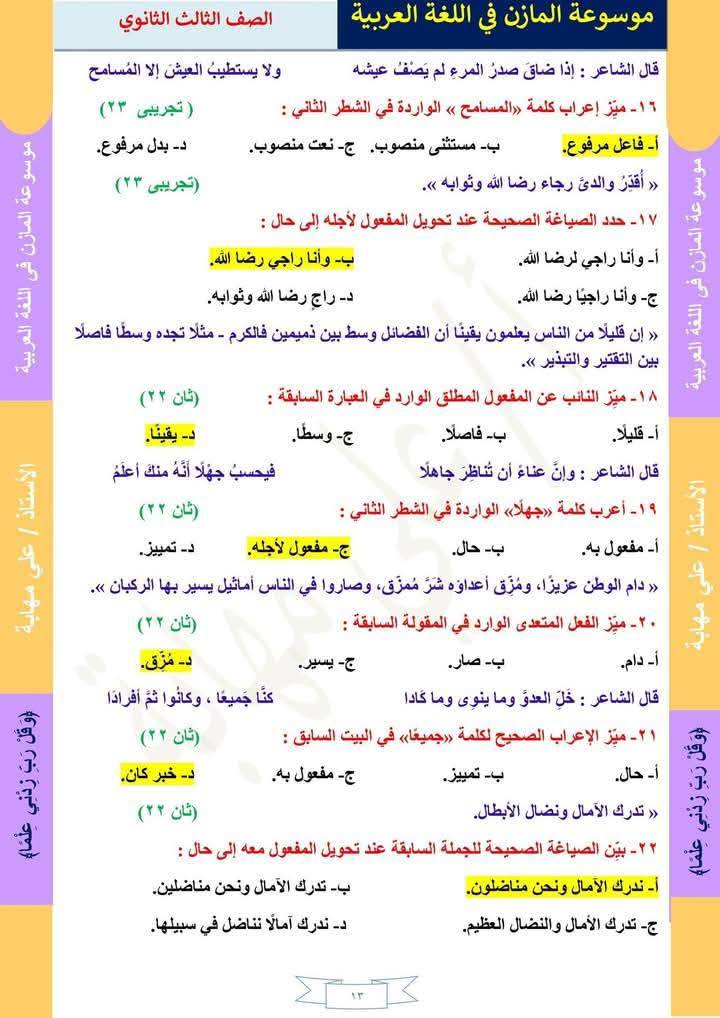 موسوعة المازن في اللغة العربية
الصف الثالث الثانوي
قال الشاعر : إذا ضاقَ صدرُ المرءِ لم يَصْفُ عيشه ولا يستطيبُ العيشَ إلا المُسامح
١٦- ميّز إعراب كلمة «المسامح » الواردة في الشطر الثاني : ( تجريبى ٢٣)
أ- فاعل مرفوع. ب- مستثنى منصوب. ج- نعت منصوب. د- بدل مرفوع.
« أُقدِّرُ والدىَّ رجاء رضا الله وثوابه ». (تجريبى ٢٣)
١٧- حدد الصياغة الصحيحة عند تحويل المفعول لأجله إلى حال :
أ- وأنا راجي لرضا الله. ب- وأنا راجي رضا الله.
ج- وأنا راجيًا رضا الله. د- راجٍ رضا الله وثوابه.
« إن قليلًا من الناس يعلمون يقينًا أن الفضائل وسط بين ذميمين فالكرم - مثلًا تجده وسطًا فاصلًا
بين التقتير والتبذير ».
١٨- ميّز النائب عن المفعول المطلق الوارد في العبارة السابقة : (ثان ٢٢)
أ- قليلًا. ب- فاصلًا. ج- وسطًا. د- يقينًا.
قال الشاعر : وإنَّ عناءً أن تُناظِرَ جاهلًا فيحسبُ جهْلًا أَنَّهُ منكَ أعلَمُ
١٩- أعرب كلمة «جهلًا» الواردة في الشطر الثاني : (ثان ٢٢)
أ- مفعول به. ب- حال. ج- مفعول لأجله. د- تمييز.
« دام الوطن عزيزًا، ومُزِّق أعداؤه شَرَّ مُمزّق، وصاروا في الناس أماثيل يسير بها الركبان ».
٢٠- ميّز الفعل المتعدى الوارد في المقولة السابقة : (ثان ٢٢)
أ- دام. ب- صار. ج- يسير. د- مُزِّق.
قال الشاعر : خَلِّ العدوَّ وما ينوِى وما كَادا كنَّا جَميعًا ، وكانُوا ثَمَّ أفرادَا
٢١- ميّز الإعراب الصحيح لكلمة «جميعًا» في البيت السابق : (ثان ٢٢)
أ- حال. ب- تمييز. ج- مفعول به. د- خبر كان.
« تدرك الآمال ونضال الأبطال. (ثان ٢٢)
٢٢- بيّن الصياغة الصحيحة للجملة السابقة عند تحويل المفعول معه إلى حال :
أ- ندرك الآمال ونحن مناضلون. ب- تدرك الآمال ونحن مناضلين.
ج- تدرك الأمال والنضال العظيم. د- ندرك آمالًا نناضل في سبيلها.
١٣
موسوعة المازن فى اللغة العربية
الأستاذ / علي مهابة
﴿وَقُلْ رَبِّ زِدْنِي عِلْمًا﴾
موسوعة المازن فى اللغة العربية
الأستاذ / علي مهابة
﴿وَقُلْ رَبِّ زِدْنِي عِلْمًا﴾
أ/علي مهابة